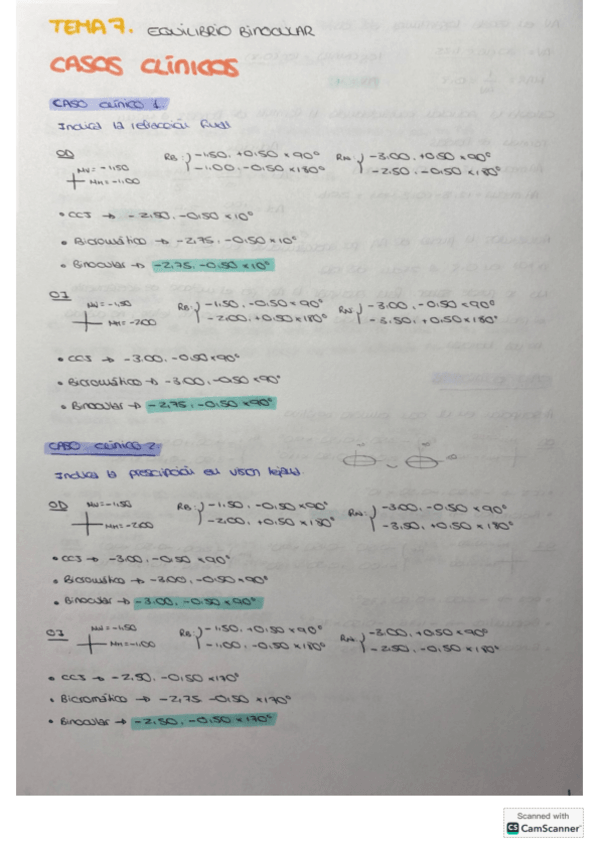 TEMA 7. EQUILIBRIO BINOCULAR
CASOS CLÍNICOS
CASO CLÍNICO 1.
Indica la refracción final
OD MV = -1,50 RB: } -1,50, +0,50 x 90° RN: } -3,00, +0,50 x 90°
MH = -1,00 -1,00, -0,50 x 180° -2,50, -0,50 x 180°
• CCJ → -2,50, -0,50 x 10°
• Bicromático → -2,75, -0,50 x 10°
• Binocular → -2,75, -0,50 x 10°
OI MV = -1,50 RB: } -1,50, -0,50 x 90° RN: } -3,00, -0,50 x 90°
MH = -2,00 -2,00, +0,50 x 180° -3,50, +0,50 x 180°
• CCJ → -3,00, -0,50 x 90°
• Bicromático → -3,00, -0,50 x 90°
• Binocular → -2,75, -0,50 x 90°
CASO CLÍNICO 2.
Indica la prescripción en visión lejana.
OD MV = -1,50 RB: } -1,50, -0,50 x 90° RN: } -3,00, -0,50 x 90°
MH = -2,00 -2,00, +0,50 x 180° -3,50, +0,50 x 180°
• CCJ → -3,00, -0,50 x 90°
• Bicromático → -3,00, -0,50 x 90°
• Binocular → -3,00, -0,50 x 90°
OI MV = -1,50 RB: } -1,50, +0,50 x 90° RN: } -3,00, +0,50 x 90°
MH = -1,00 -1,00, -0,50 x 180° -2,50, -0,50 x 180°
• CCJ → -2,50, -0,50 x 170°
• Bicromático → -2,75 -0,50 x 170°
• Binocular → -2,50, -0,50 x 170°
1
Scanned with
CS CamScanner